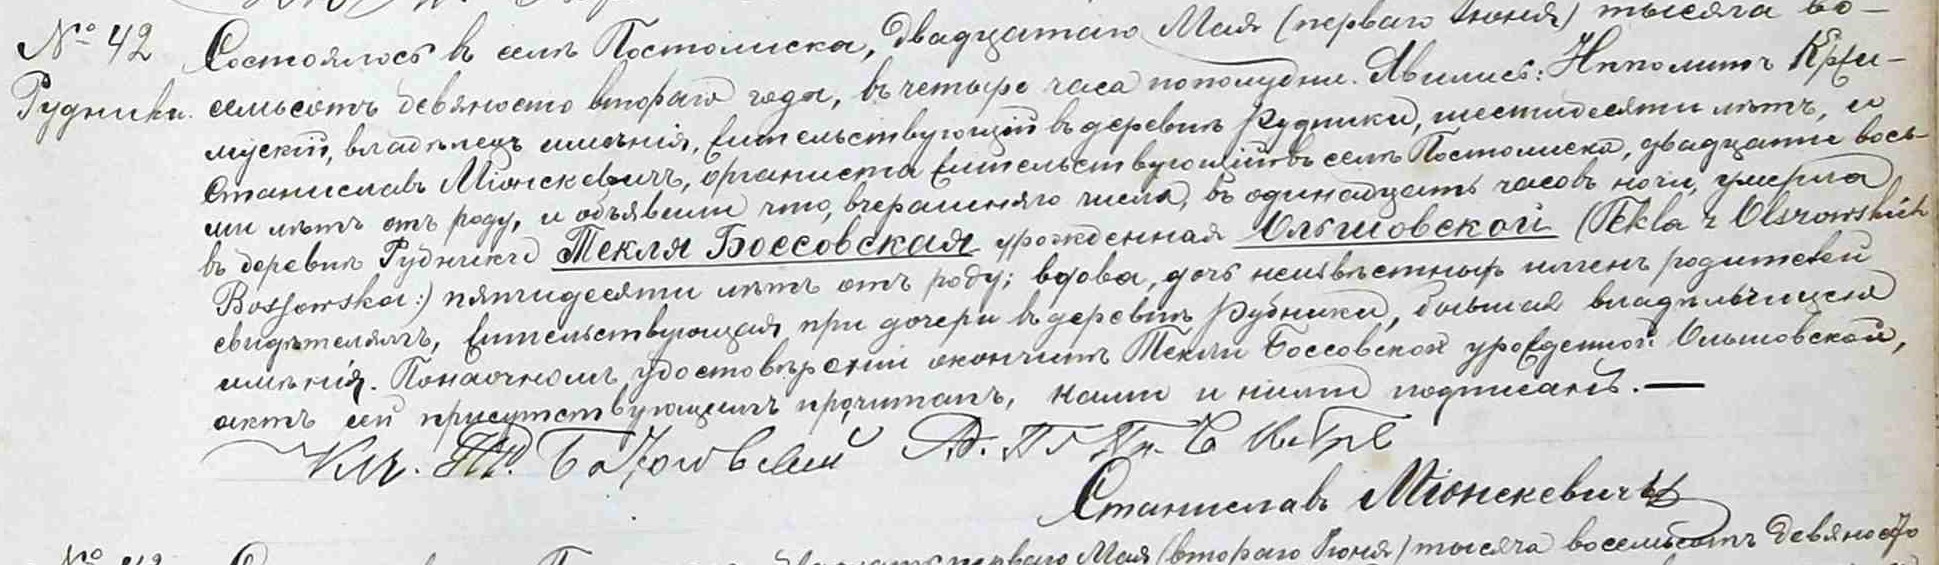 № 42
Рудники.
Состоялось въ селѣ Постолиска, двадцатаго Мая (перваго Іюня) тысяча во-
семьсотъ девяносто втораго года, въ четыре часа пополудни. Явились:
мускій, владѣлецъ имѣнія, жительствующій въ деревнѣ Рудники, шестидесяти лѣтъ, и
Станиславъ Міонскевичъ, органиста жительствующій въ селѣ Постолиска, двадцати вось-
ми лѣтъ отъ роду, и объявили что, вчерашняго числа, въ одинадцать часовъ ночи, умерла
въ деревнѣ Рудники Текля Боссовская урожденная Ольшовской (Tekla z Olszowskich
Bossowska:) пятидесяти лѣтъ отъ роду; вдова, дочь неизвѣстныхъ именъ родителей
свидѣтелямъ, жительствующая при дочери въ деревнѣ Рудники, бывшая владѣльчицею
имѣнія. По наочномъ удостовѣреніи окончинѣ Текли Боссовской урожденной Ольшовской,
актъ сей присутствующимъ прочитанъ, нами и ними подписанъ. —
Станиславъ Міонскевичъ
Мая (втораго Іюня) тысяча восемьсотъ девяносто